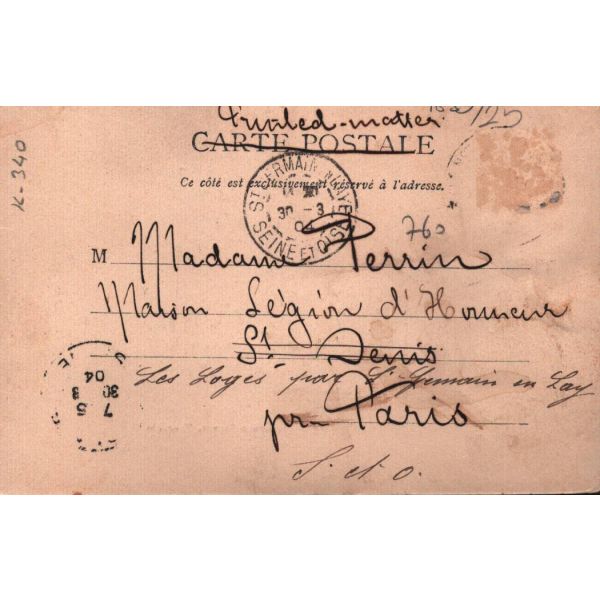 Printed-matter
CARTE POSTALE
Ce côté est exclusivement réservé à l'adresse.
K-340
/25
760
ST GERMAIN EN LAYE
30 - 3
04
SEINE ET OISE
M Madame Perrin
Maison Légion d'Honneur
St Denis
Les Loges par St Germain en Lay
prn Paris
S. et O.
7 5
30 3
04